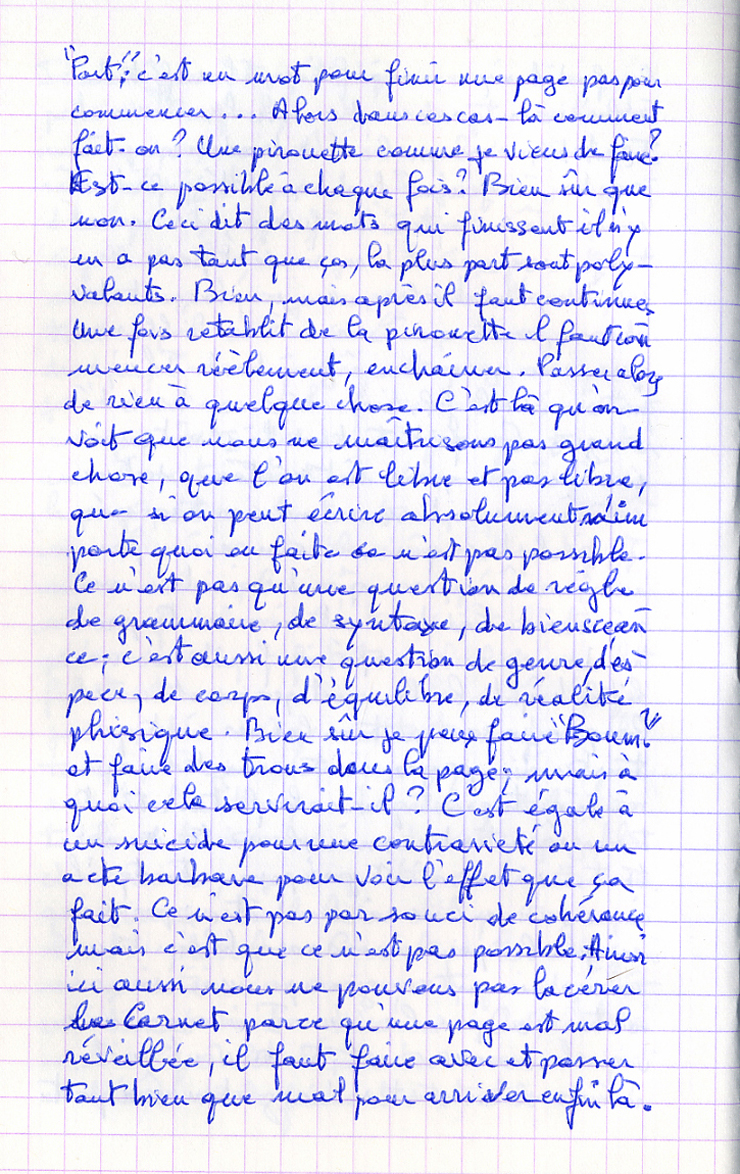 "Port", c'est un mot pour finir une page pas pour
commencer... Alors dans ces cas-là comment
fait-on? Une pirouette comme je viens de faire?
Est-ce possible à chaque fois? Bien sûr que
non. Ceci dit des mots qui finissent il n'y
en a pas tant que ça, la plus part sont poly-
valents. Bien, mais après il faut continuer
Une fois rétablit de la pirouette il faut com
mencer réélement, enchaîner. Passer alors
de rien à quelque chose. C'est là qu'on
voit que nous ne maîtrisons pas grand
chose, que l'on est libre et pas libre,
que si on peut écrire absolument n'im
porte quoi en faite ce n'est pas possible.
Ce n'est pas qu'une question de règle
de grammaire, de syntaxe, de bienscean
ce; c'est aussi une question de genre, d'es
pece, de corps, d'équilibre, de réalité
phisique. Bien sûr je peux faire "Boum"
et faire des trous dans la page; mais à
quoi cela servirait-il? C'est égale à
un suicide pour une contrarieté ou un
acte barbare pour voir l'effet que ça
fait. Ce n'est pas par souci de cohérance
mais c'est que ce n'est pas possible. Ainsi
ici aussi nous ne pouvons pas lacérer
le Carnet parce qu'une page est mal
réveillée, il faut faire avec et passer
tant bien que mal pour arriver enfin là.